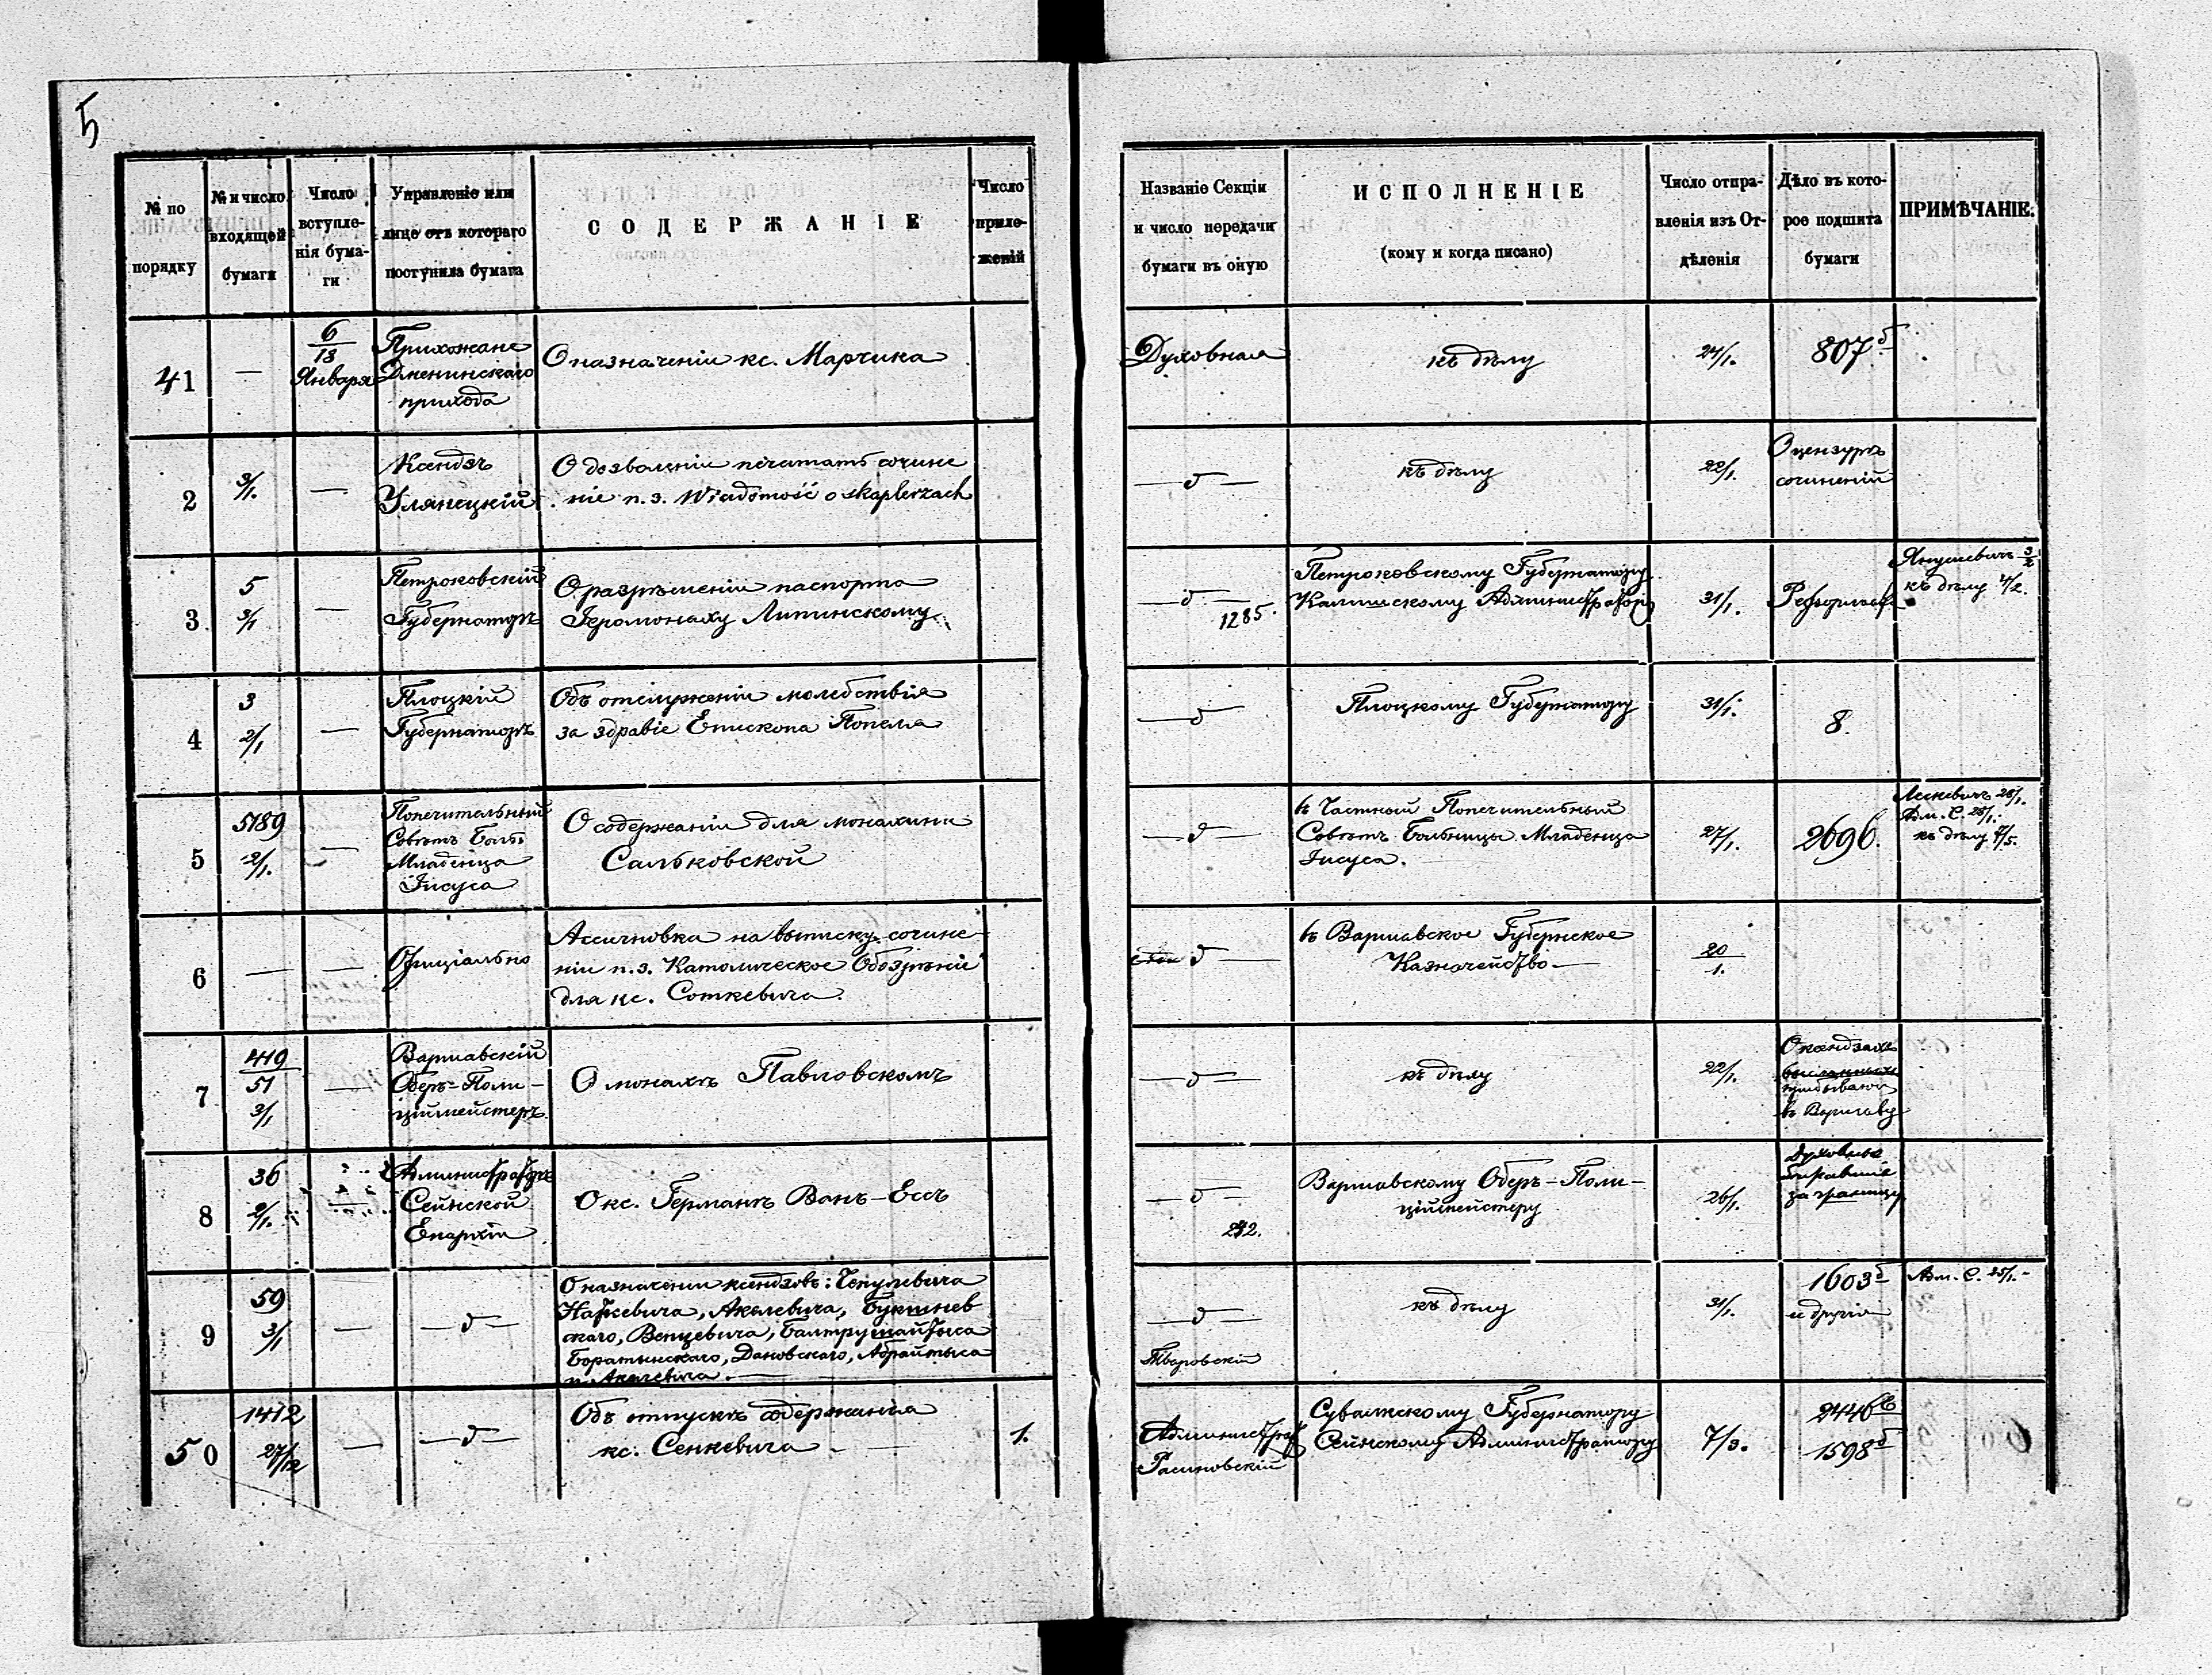 5
№ по порядку
№ и число входящей бумаги
Число вступленія бумаги
Управленіе или лице отъ котораго поступила бумага
СОДЕРЖАНІЕ
Число приложеній
Названіе Секціи и число передачи бумаги въ оную
ИСПОЛНЕНІЕ
(кому и когда писано)
Число отправленія изъ Отдѣленія
Дѣло въ которое подшита бумаги
ПРИМѢЧАНІЕ.
41
—
6/18
Января
Прихожане
прихода
О назначеніи кс. Марчика
Духовная
къ дѣлу
24/1.
807 б
2
3/1.
—
Ксендзъ
Улянецкій
О дозволеніи печатать сочине
ніе п. з. Wiadomość o skaplerzach
— д —
къ дѣлу
22/1.
О цензурѣ
сочиненій
3
5
3/1
—
Петроковскій
Губернаторъ
О разрѣшеніи паспорта
Іеромонаху Липинскому
— д —
1285.
Петроковскому Губернатору
Калишскому
31/1.
Янушевичъ 3/2
къ дѣлу 4/2.
4
3
2/1
—
Плоцкій
Губернаторъ
Объ отслуженіи молебствія
за здравіе Епископа Попеля
— д —
Плоцкому Губернатору
31/1.
8.
5
5189
2/1.
—
Попечительный
Совѣтъ Больн.
Младенца
Іисуса
О содержаніи для монахини
Сальковской
— д —
въ Частный Попечительный
Совѣтъ Больницы Младенца
Іисуса.
27/1.
2696.
Адм. С. 28/1.
къ дѣлу
6
—
—
Официально
Ассигновка на выписку сочине-
ніи п. з. Католическое Обозрѣніе
для кс. Соткевича.
д —
въ Варшавское Губернское
Казначейство —
20/1.
7
419
51
3/1
—
Варшавскій
Оберъ-Поли-
ціймейстеръ
О монахѣ Павловскомъ
— д —
къ дѣлу
22/1.
О ксендзахъ
въ Варшаву
8
36
2/1.
Администраторъ
Сейнской
Епархіи
О кс. Германѣ Ванъ-Ессъ
— д —
Варшавскому Оберъ-Поли-
ціймейстеру
26/1.
за границу
9
59
3/1
—
— д —
О назначеніи ксендзовъ:
Акялевича,
скаго, Венцевича, Балтрушайтыса
Боратынскаго, Дановскаго, Абрайтыса
и Акялевича. —
— д —
къ дѣлу
31/1.
1603 б
и другія
Адм. С. 25/1. -
50
1412
27/12
—
— д —
Объ отпускѣ содержанія
кс. Сенкевича —
1.
Расиновскій
Сувалкскому Губернатору
Сейнскому Администратору
7/3.
2446
1598 б